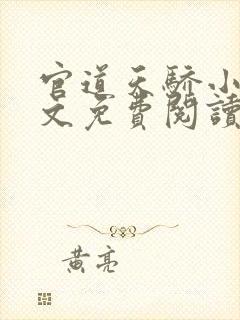 官道天驕小
文免費閱讀
黃亮